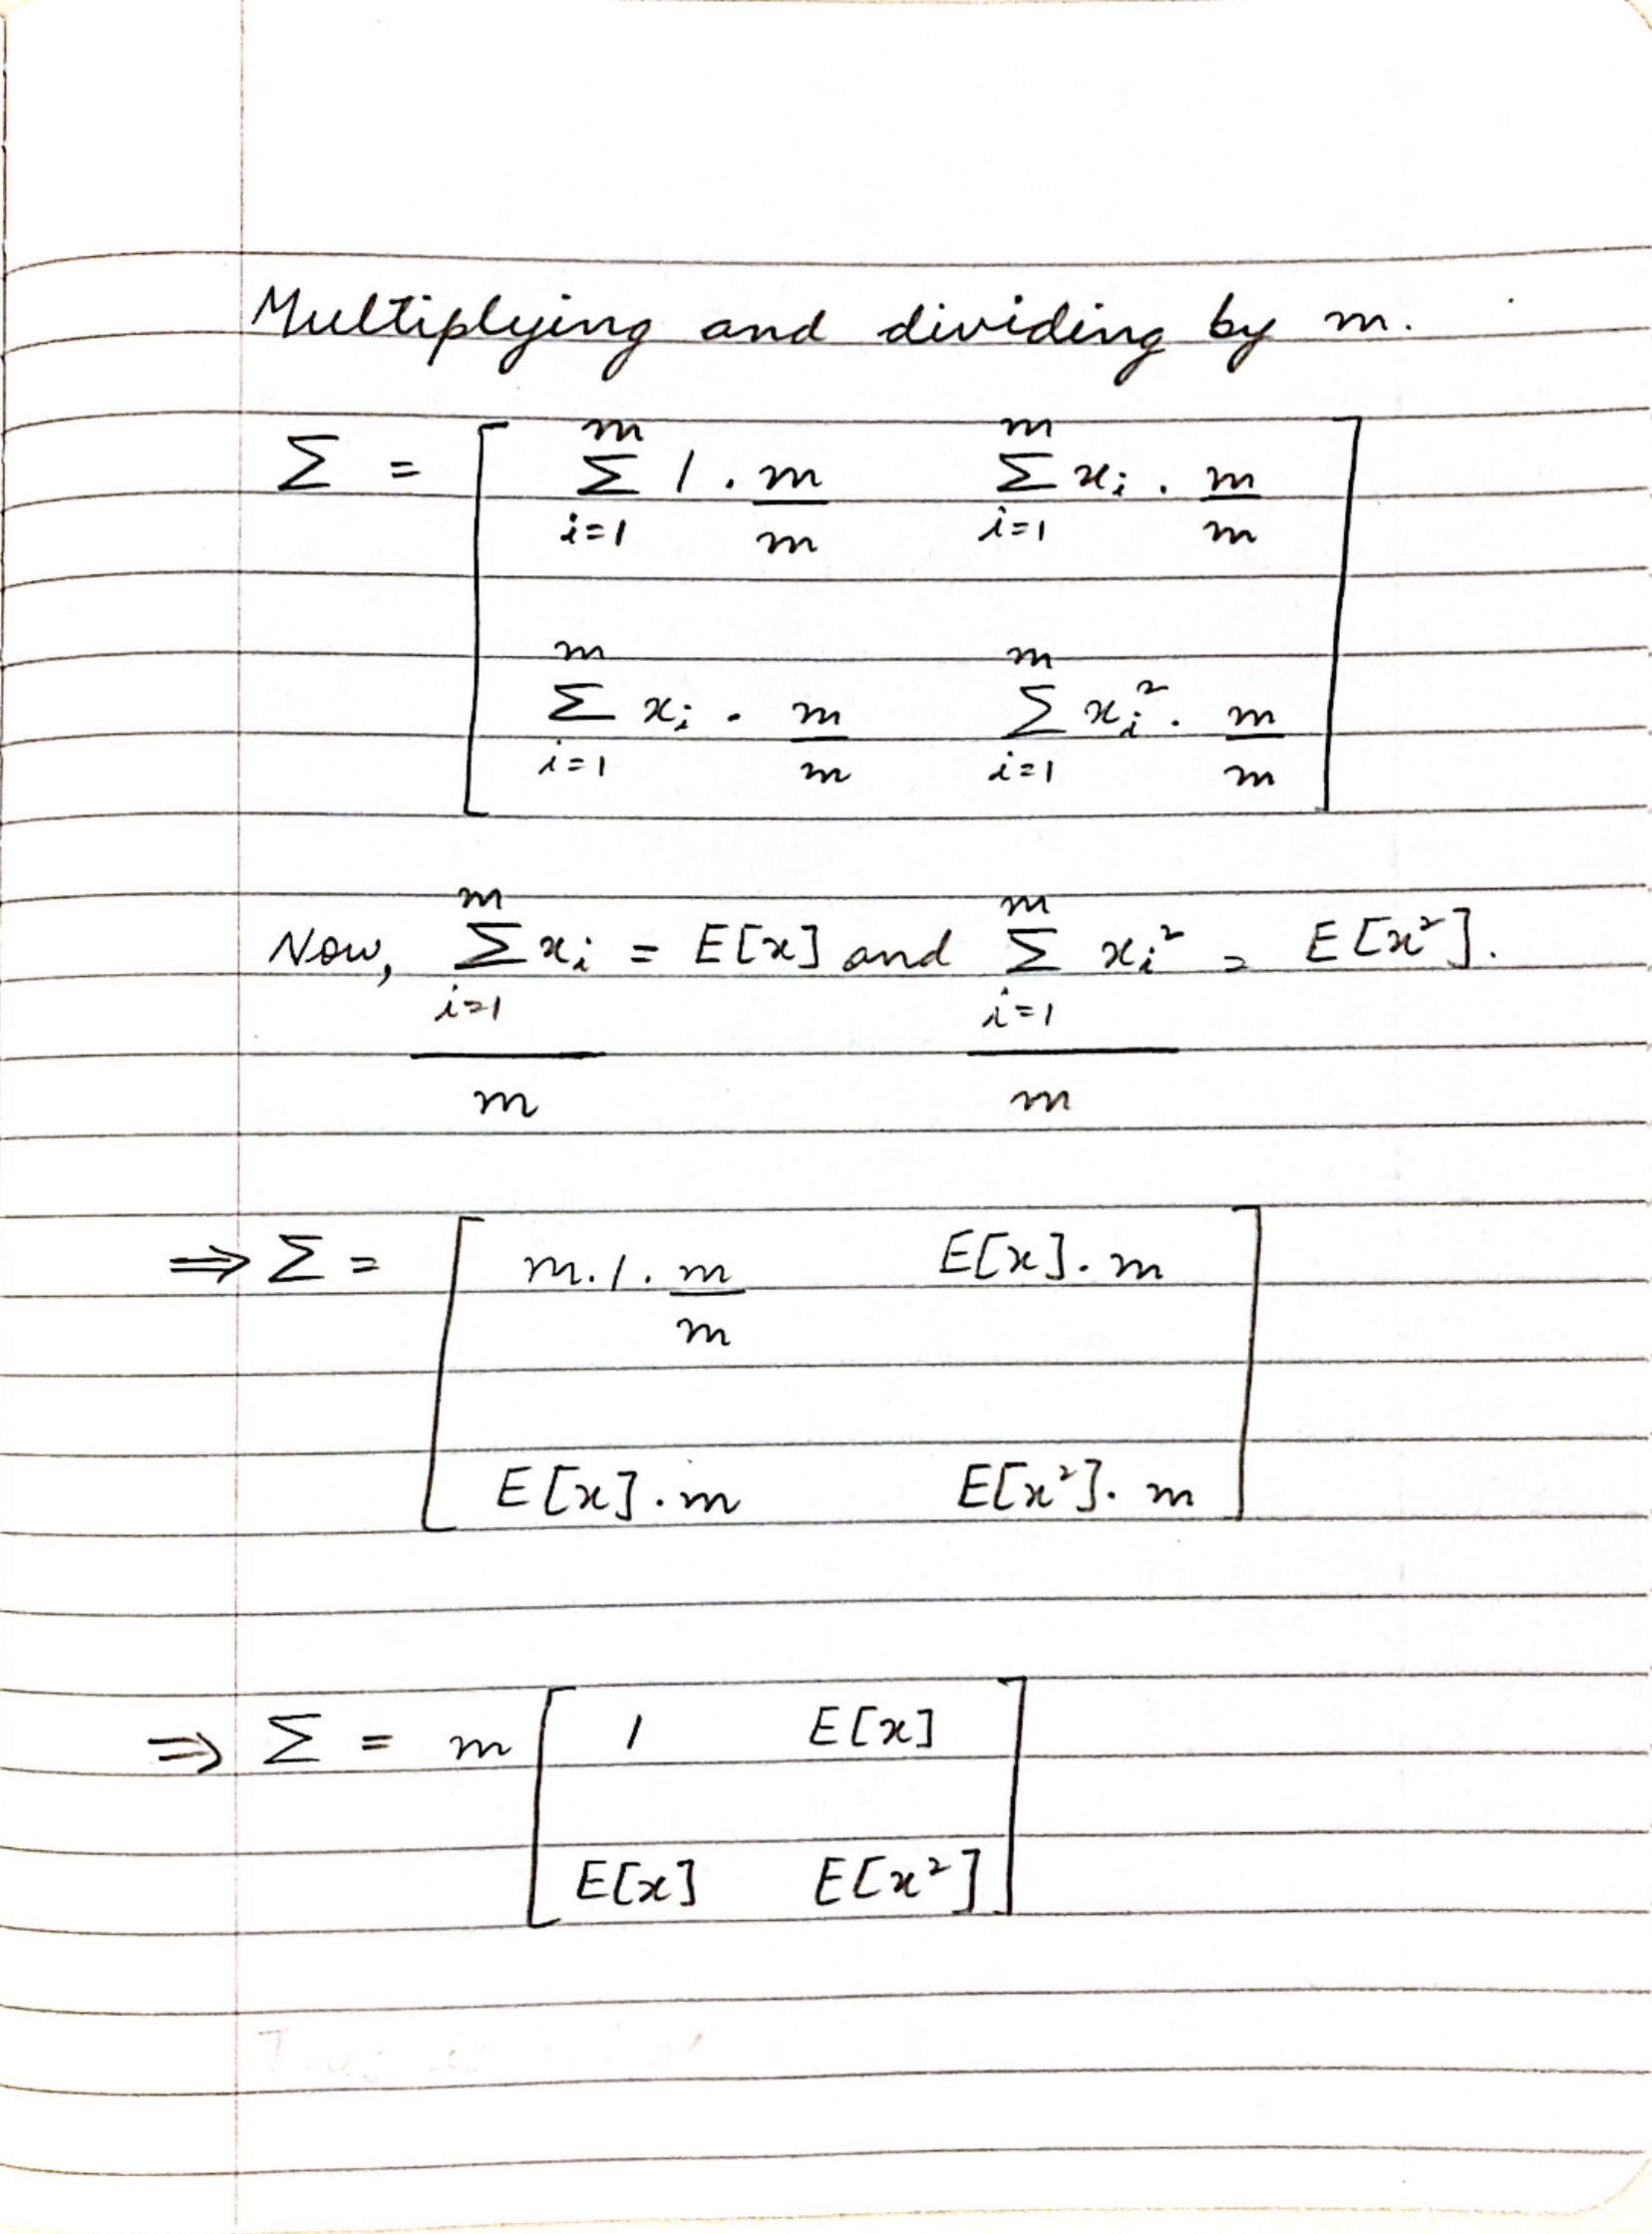 Multiplying and dividing by m.
Σ = [ \sum_{i=1}^{m} 1 · \frac{m}{m}    \sum_{i=1}^{m} x_i · \frac{m}{m}
\sum_{i=1}^{m} x_i · \frac{m}{m}    \sum_{i=1}^{m} x_i^2 · \frac{m}{m} ]
Now, \frac{\sum_{i=1}^{m} x_i}{m} = E[x] and \frac{\sum_{i=1}^{m} x_i^2}{m} = E[x²].
⇒ Σ = [ m.1.\frac{m}{m}    E[x]. m
E[x].m    E[x²]. m ]
⇒ Σ = m [ 1    E[x]
E[x]    E[x²] ]